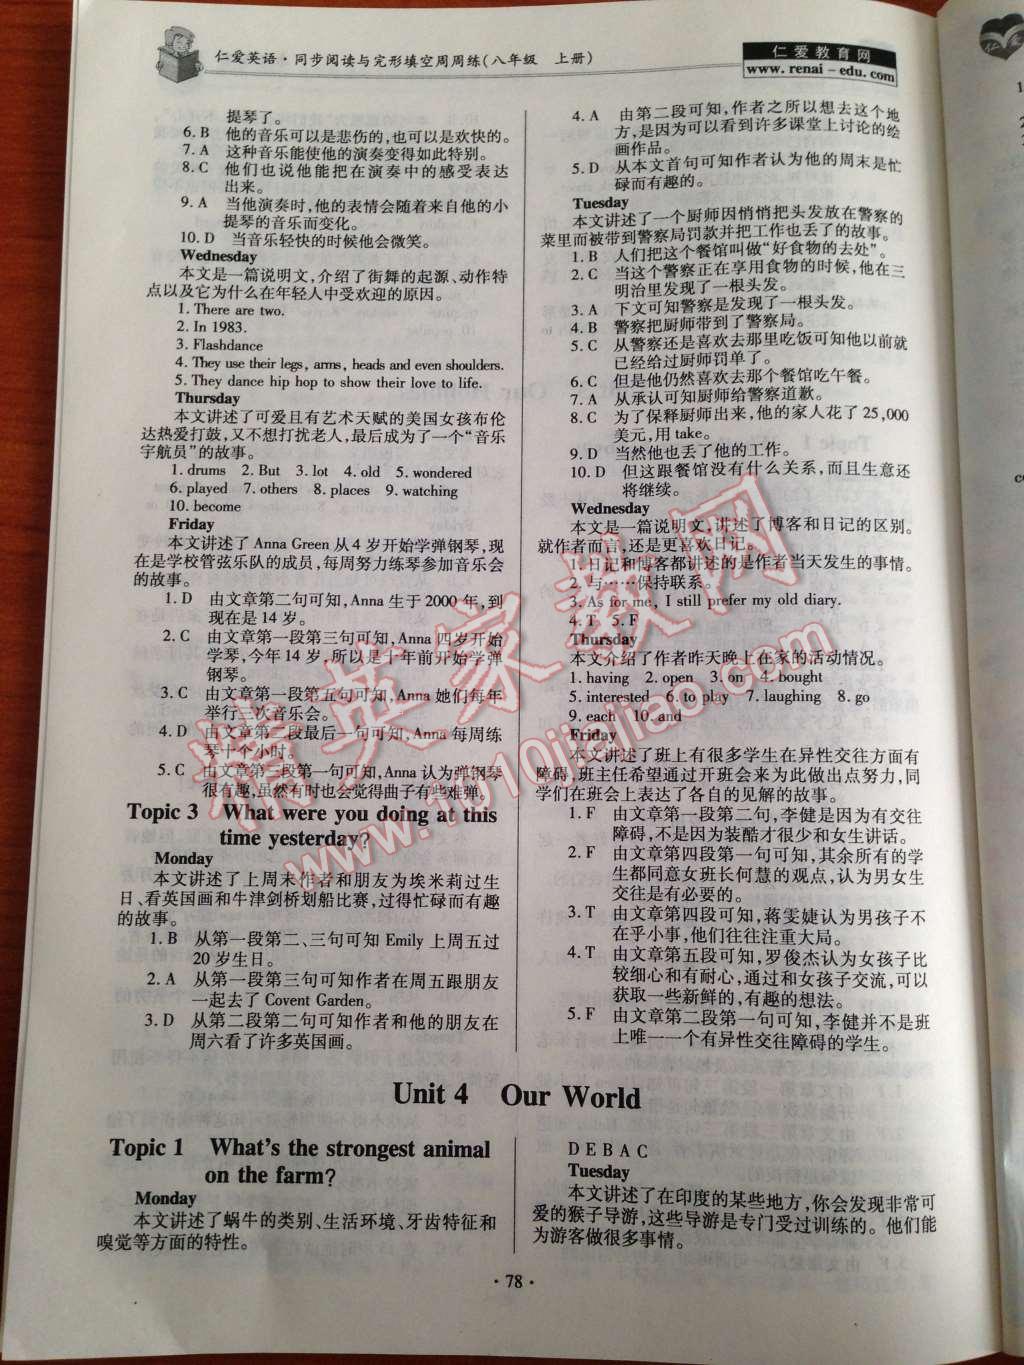 仁爱英语·同步阅读与完形填空周周练(八年级 上册)
仁爱教育网
www.renai-edu.com
提琴了。
6. B 他的音乐可以是悲伤的,也可以是欢快的。
7. A 这种音乐能使他的演奏变得如此特别。
8. C 他们也说他能把在演奏中的感受表达
出来。
9. A 当他演奏时,他的表情会随着来自他的小
提琴的音乐而变化。
10. D 当音乐轻快的时候他会微笑。
Wednesday
本文是一篇说明文,介绍了街舞的起源、动作特
点以及它为什么在年轻人中受欢迎的原因。
1. There are two.
2. In 1983.
3. Flashdance
4. They use their legs, arms, heads and even shoulders.
5. They dance hip hop to show their love to life.
Thursday
本文讲述了可爱且有艺术天赋的美国女孩布伦
达热爱打鼓,又不想打扰老人,最后成为了一个“音乐
宇航员”的故事。
1. drums 2. But 3. lot 4. old 5. wondered
6. played 7. others 8. places 9. watching
10. become
Friday
本文讲述了 Anna Green 从 4 岁开始学弹钢琴,现
在是学校管弦乐队的成员,每周努力练琴参加音乐会
的故事。
1. D 由文章第二句可知,Anna 生于 2000 年,到
现在是 14 岁。
2. C 由文章第一段第三句可知,Anna 四岁开始
学琴,今年 14 岁,所以是十年前开始学弹
钢琴。
3. C 由文章第一段第五句可知,Anna 她们每年
举行三次音乐会。
4. D 由文章第二段最后一句可知,Anna 每周练
琴十个小时。
5. C 由文章第三段第一句可知,Anna 认为弹钢琴
很有趣,虽然有时也会觉得曲子有些难弹。
Topic 3 What were you doing at this
time yesterday?
Monday
本文讲述了上周末作者和朋友为埃米莉过生
日、看英国画和牛津剑桥划船比赛,过得忙碌而有趣
的故事。
1. B 从第一段第二、三句可知 Emily 上周五过
20 岁生日。
2. A 从第一段第三句可知作者在周五跟朋友
一起去了 Covent Garden。
3. D 从第二段第二句可知作者和他的朋友在
周六看了许多英国画。
4. A 由第二段可知,作者之所以想去这个地
方,是因为可以看到许多课堂上讨论的绘
画作品。
5. D 从本文首句可知作者认为他的周末是忙
碌而有趣的。
Tuesday
本文讲述了一个厨师因悄悄把头发放在警察的
菜里而被带到警察局罚款并把工作也丢了的故事。
1. B 人们把这个餐馆叫做“好食物的去处”。
2. C 当这个警察正在享用食物的时候,他在三
明治里发现了一根头发。
3. A 下文可知警察是发现了一根头发。
4. B 警察把厨师带到了警察局。
5. C 从警察还是喜欢去那里吃饭可知他以前就
已经给过厨师罚单了。
6. C 但是他仍然喜欢去那个餐馆吃午餐。
7. A 从承认可知厨师给警察道歉。
8. C 为了保释厨师出来,他的家人花了 25,000
美元,用 take。
9. D 当然他也丢了他的工作。
10. D 但这跟餐馆没有什么关系,而且生意还
将继续。
Wednesday
本文是一篇说明文,讲述了博客和日记的区别。
就作者而言,还是更喜欢日记。
1. 日记和博客都讲述的是作者当天发生的事情。
2. 与……保持联系。
3. As for me, I still prefer my old diary.
4. T 5. F
Thursday
本文介绍了作者昨天晚上在家的活动情况。
1. having 2. open 3. on 4. bought
5. interested 6. to play 7. laughing 8. go
9. each 10. and
Friday
本文讲述了班上有很多学生在异性交往方面有
障碍,班主任希望通过开班会来为此做出点努力,同
学们在班会上表达了各自的见解的故事。
1. F 由文章第一段第二句,李健是因为有交往
障碍,不是因为装酷才很少和女生讲话。
2. F 由文章第四段第一句可知,其余所有的学
生都同意女班长何慧的观点,认为男女生
交往是有必要的。
3. T 由文章第四段可知,蒋雯婕认为男孩子不
在乎小事,他们往往注重大局。
4. T 由文章第五段可知,罗俊杰认为女孩子比
较细心和有耐心,通过和女孩子交流,可以
获取一些新鲜的,有趣的想法。
5. F 由文章第二段第一句可知,李健并不是班
上唯一一个有异性交往障碍的学生。
Unit 4 Our World
Topic 1 What's the strongest animal
on the farm?
Monday
本文讲述了蜗牛的类别、生活环境、牙齿特征和
嗅觉等方面的特性。
D E B A C
Tuesday
本文讲述了在印度的某些地方,你会发现非常可
爱的猴子导游,这些导游是专门受过训练的。他们能
为游客做很多事情。
· 78 ·
精英家教网
www.1010jiajiao.com